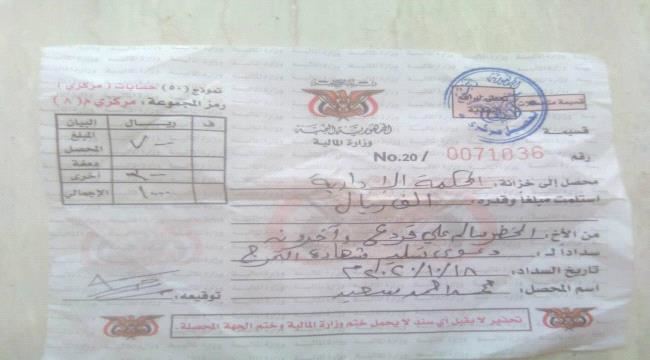 نموذج (٥٠) حسابات (مركزي)
رمز المجموعة: مركزي م (٨)
البيان ريال ف
المبلغ المحصل ٧٠٠
دمغة
أخرى ٣٠٠
الإجمالي ١٠٠٠
الجمهورية اليمنية
وزارة المالية
قسيمة
رقم No.20/ 0071036
محصل إلى خزانة: المحكمة الإدارية
استلمت مبلغاً وقدره: ألف ريال
من الأخ: سالم علي وآخرون
سداداً لـ: دعوى شهادة التخرج
تاريخ السداد: ١٨/١٠/٢٠٢٠م
اسم المحصل: محمد احمد سعيد
توقيعه:
تحذير لا يقبل أي سند لا يحمل ختم وزارة المالية وختم الجهة المحصلة.